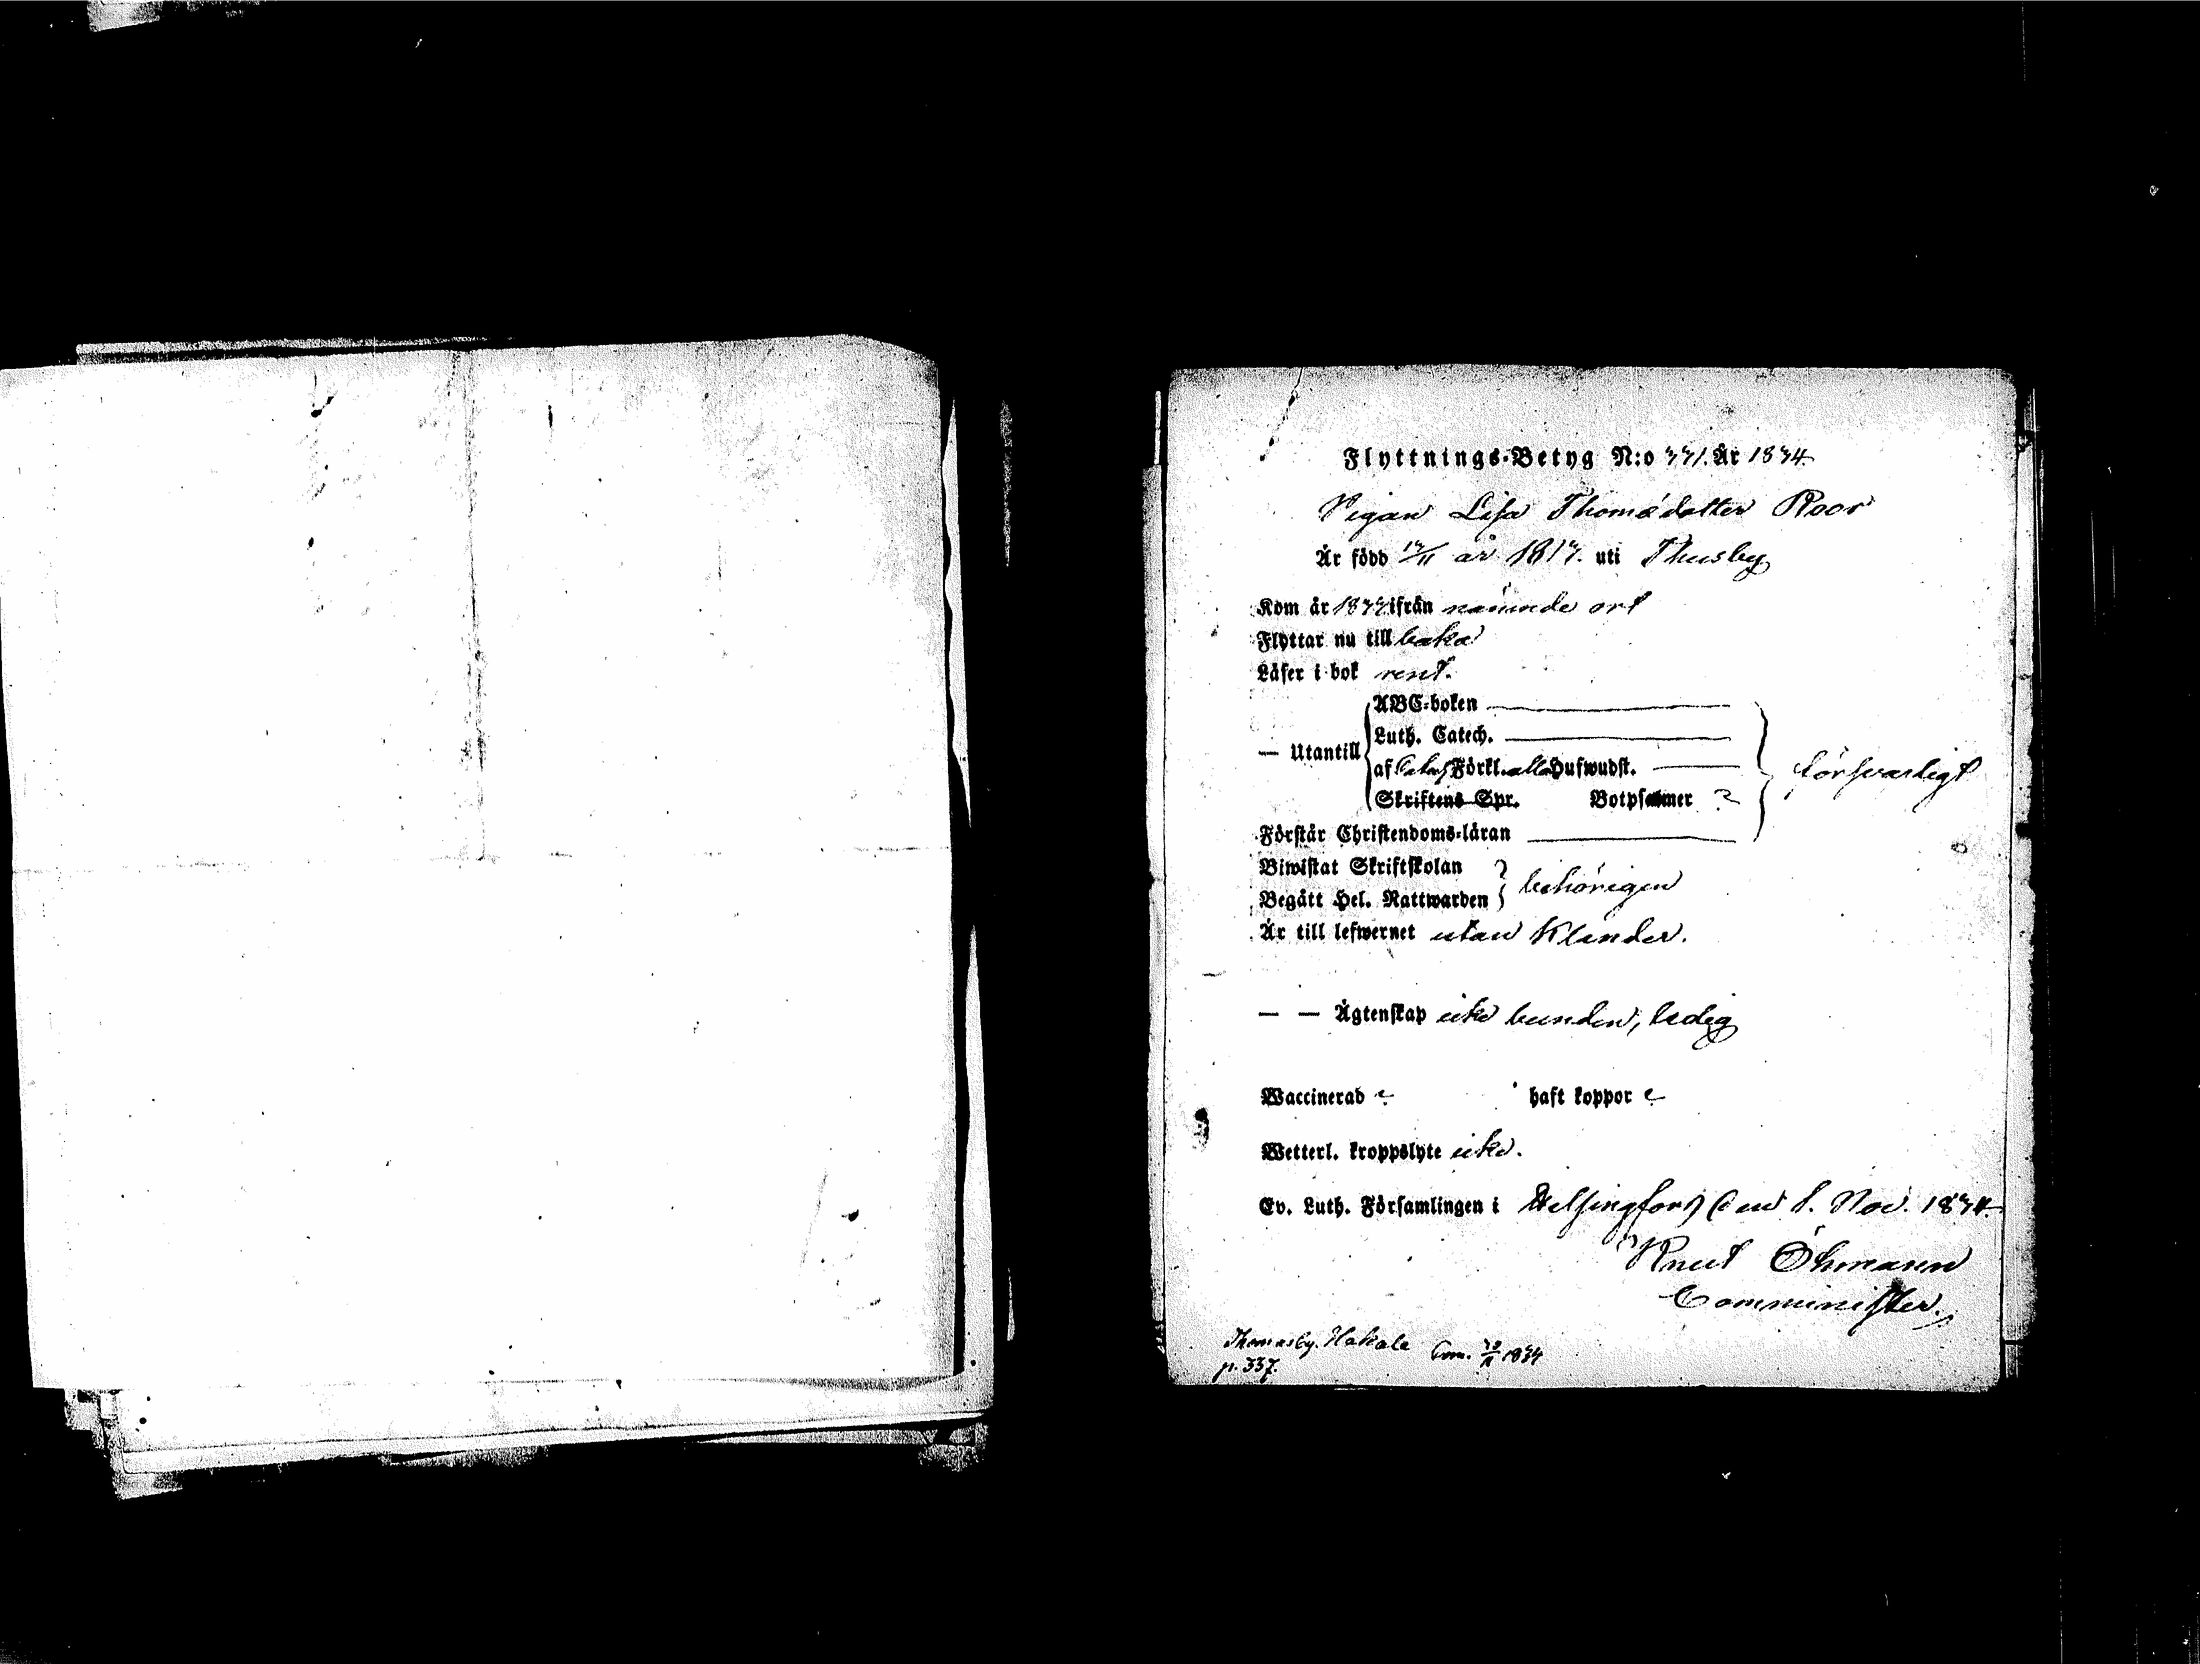 Flyttnings-Betyg N:o 771. År 1874.
Pigan Lisa Thomasdotter Roos
Är född 17/11 år 1817. uti Thusby
Kom år 1877 ifrån nämnde ort
Flyttar nu till baka
Läser i bok rent.
— Utantill
ABC-boken
Luth. Catech.
af Förkl. alla Hufwudst.
Skriftens Spr. Botpsalmer ?
försvarligt
Förstår Christendoms-läran
Biwistat Skriftskolan
Begått Hel. Nattwarden
behörigen
Är till lefwernet utan klander.
— — Ägtenskap icke bunden, ledig
Waccinerad ? haft koppor ?
Wetterl. kroppslyte icke.
Ev. Luth. Församlingen i Helsingfors den 8. Nov. 1874.
Knut Öhmann
Comminister.
Thomasby. Hakala
p. 337.